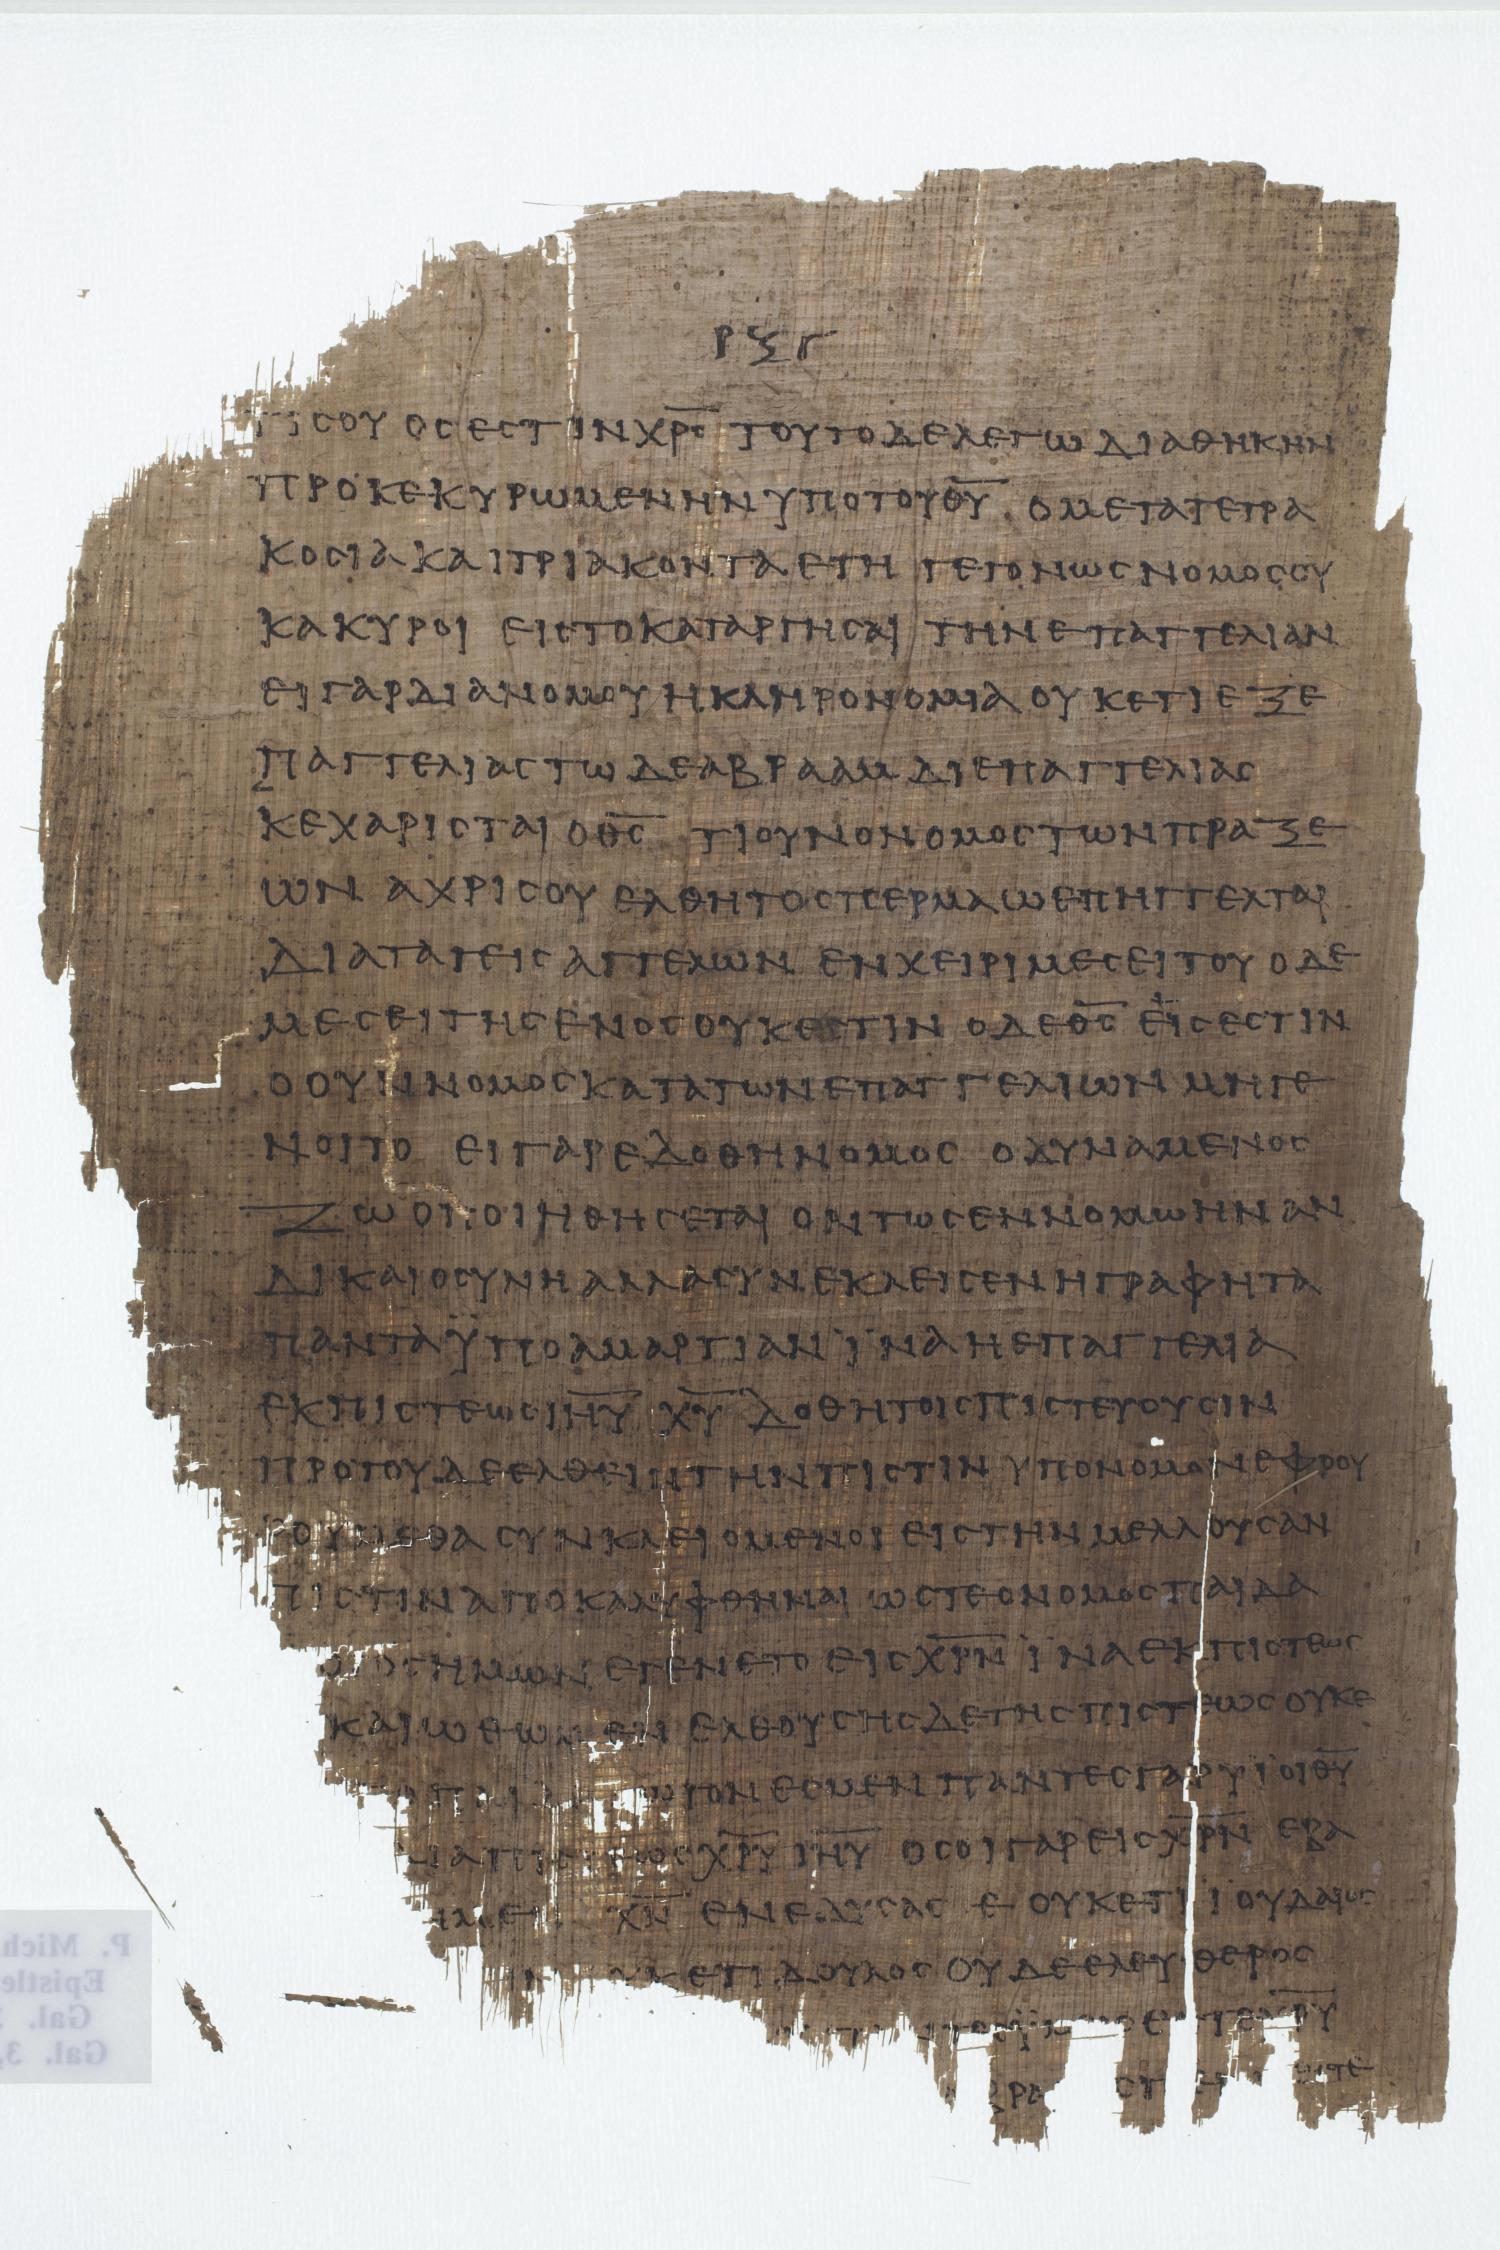 ΡΞΓ
ΤΙ ϹΟΥ ΟϹ ΕϹΤΙΝ ΧΡ̅Ϲ̅ ΤΟΥΤΟ ΔΕ ΛΕΓΩ ΔΙΑΘΗΚΗΝ
ΠΡΟΚΕΚΥΡΩΜΕΝΗΝ ΥΠΟ ΤΟΥ Θ̅Υ̅ Ο ΜΕΤΑ ΤΕΤΡΑ
ΚΟϹΙΑ ΚΑΙ ΤΡΙΑΚΟΝΤΑ ΕΤΗ ΓΕΓΟΝΩϹ ΝΟΜΟϹ ΟΥ
ΚΑΚΥΡΟΙ ΕΙϹ ΤΟ ΚΑΤΑΡΓΗϹΑΙ ΤΗΝ ΕΠΑΓΓΕΛΙΑΝ
ΕΙ ΓΑΡ ΔΙΑ ΝΟΜΟΥ Η ΚΛΗΡΟΝΟΜΙΑ ΟΥΚΕΤΙ ΕΞ Ε
ΠΑΓΓΕΛΙΑϹ ΤΩ ΔΕ ΑΒΡΑΑΜ ΔΙ ΕΠΑΓΓΕΛΙΑϹ
ΚΕΧΑΡΙϹΤΑΙ Ο Θ̅Ϲ̅ ΤΙ ΟΥΝ Ο ΝΟΜΟϹ ΤΩΝ ΠΡΑΞΕ
ΩΝ ΑΧΡΙϹ ΟΥ ΕΛΘΗ ΤΟ ϹΠΕΡΜΑ Ω ΕΠΗΓΓΕΛΤΑΙ
ΔΙΑΤΑΓΕΙϹ ΑΓΓΕΛΩΝ ΕΝ ΧΕΙΡΙ ΜΕϹΕΙΤΟΥ Ο ΔΕ
ΜΕϹΕΙΤΗϹ ΕΝΟϹ ΟΥΚ ΕϹΤΙΝ Ο ΔΕ Θ̅Ϲ̅ ΕΙϹ ΕϹΤΙΝ
Ο ΟΥΝ ΝΟΜΟϹ ΚΑΤΑ ΤΩΝ ΕΠΑΓΓΕΛΙΩΝ ΜΗ ΓΕ
ΝΟΙΤΟ ΕΙ ΓΑΡ ΕΔΟΘΗ ΝΟΜΟϹ Ο ΔΥΝΑΜΕΝΟϹ
ΖΩΟΠΟΙΗΘΗϹΕΤΑΙ ΟΝΤΩϹ ΕΝ ΝΟΜΩ ΗΝ ΑΝ
ΔΙΚΑΙΟϹΥΝΗ ΑΛΛΑ ϹΥΝΕΚΛΕΙϹΕΝ Η ΓΡΑΦΗ ΤΑ
ΠΑΝΤΑ ΫΠΟ ΑΜΑΡΤΙΑΝ ΪΝΑ Η ΕΠΑΓΓΕΛΙΑ
ΕΚ ΠΙϹΤΕΩϹ Ι̅Η̅Υ̅ Χ̅Υ̅ ΔΟΘΗ ΤΟΙϹ ΠΙϹΤΕΥΟΥϹΙΝ
ΠΡΟ ΤΟΥ ΔΕ ΕΛΘΕΙΝ ΤΗΝ ΠΙϹΤΙΝ ΥΠΟ ΝΟΜΟΝ ΕΦΡΟΥ
ΡΟΥΜΕΘΑ ϹΥΝΚΛΕΙΟΜΕΝΟΙ ΕΙϹ ΤΗΝ ΜΕΛΛΟΥϹΑΝ
ΠΙϹΤΙΝ ΑΠΟΚΑΛΥΦΘΗΝΑΙ ΩϹΤΕ Ο ΝΟΜΟϹ ΠΑΙΔΑ
ΗΜΩΝ ΕΓΕΝΕΤΟ ΕΙϹ Χ̅Ρ̅Ν̅ ΪΝΑ ΕΚ ΠΙϹΤΕΩϹ
ΔΙΚΑΙΩΘΩΜΕΝ ΕΛΘΟΥϹΗϹ ΔΕ ΤΗϹ ΠΙϹΤΕΩϹ ΟΥΚΕ
ΕϹΜΕΝ ΠΑΝΤΕϹ ΓΑΡ ΥΪΟΙ Θ̅Υ̅
Χ̅Ρ̅Υ̅ Ι̅Η̅Υ̅ ΟϹΟΙ ΓΑΡ ΕΙϹ Χ̅Ρ̅Ν̅ ΕΒΑ
Χ̅Ν̅ ΕΝΕΔΥϹΑϹ Ε ΟΥΚΕΤΙ ΪΟΥΔΑΙΟϹ
ΟΥΚΕΤΙ ΔΟΥΛΟϹ ΟΥΔΕ ΕΛΕΥΘΕΡΟϹ